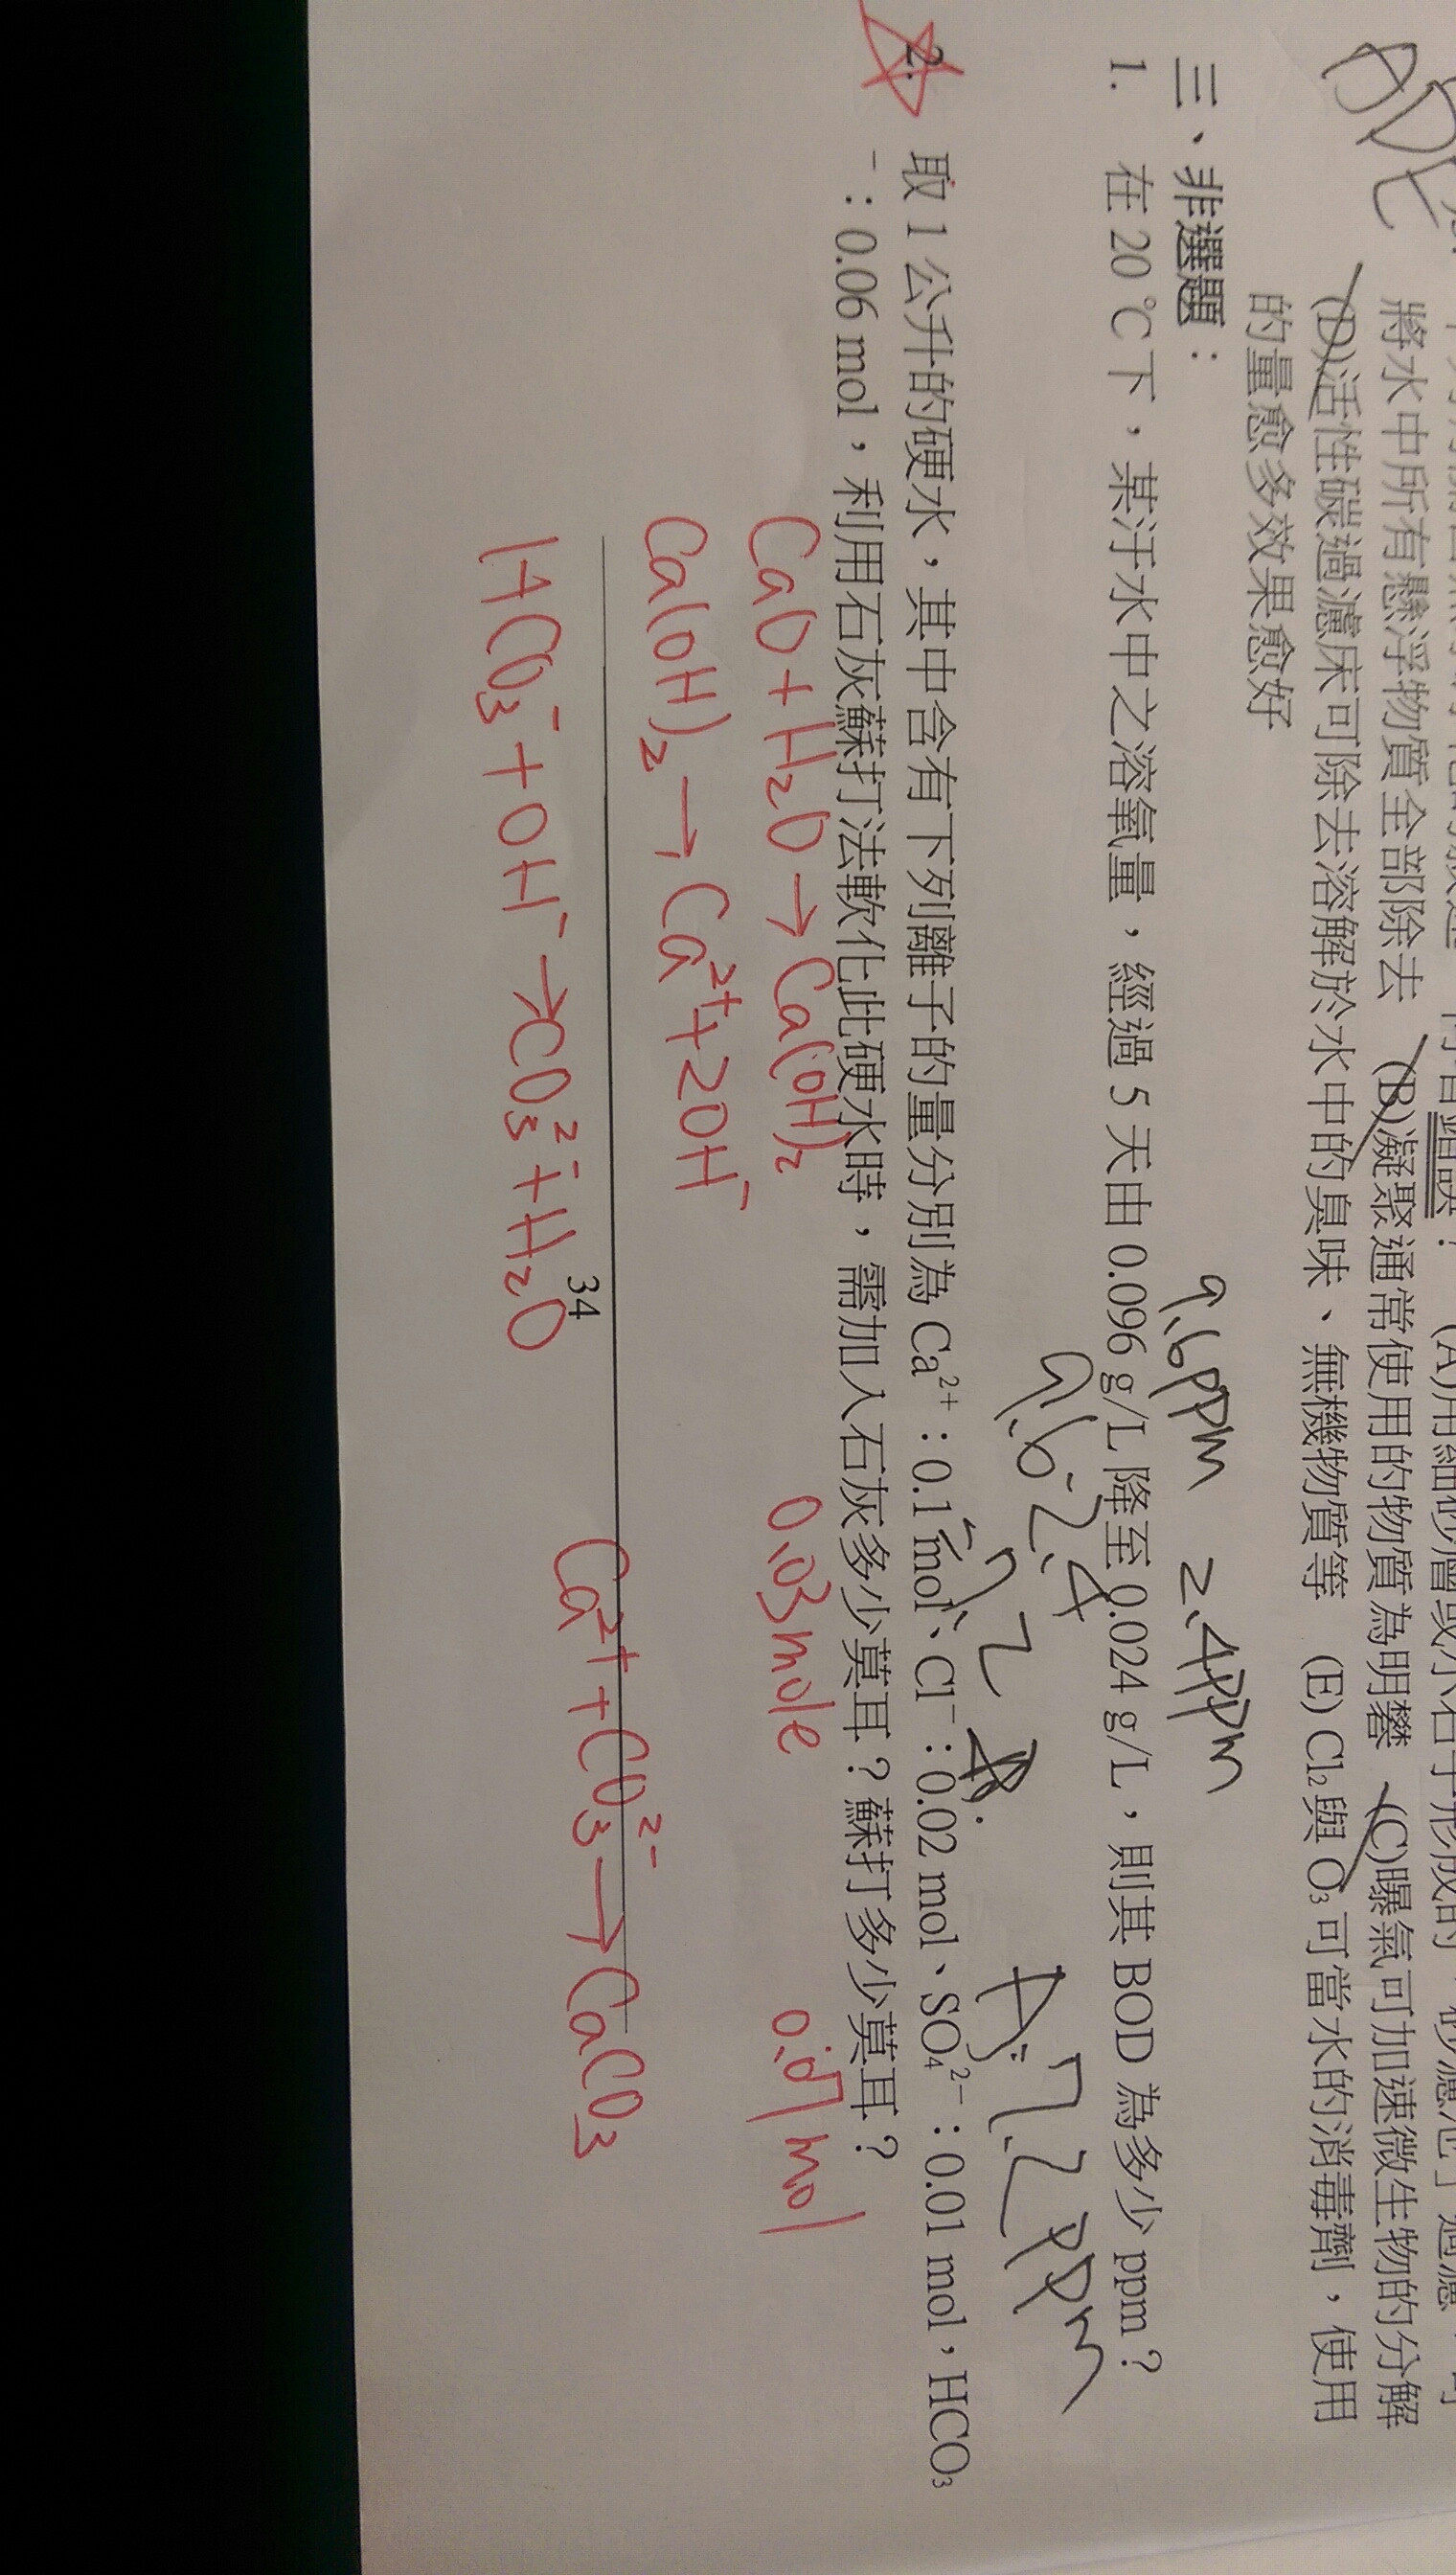 ADE
將水中所有懸浮物質全部除去 (B)凝聚通常使用的物質為明礬 (C)曝氣可加速微生物的分解
(D)活性碳過濾床可除去溶解於水中的臭味、無機物質等 (E) Cl₂與 O₃可當水的消毒劑，使用
的量愈多效果愈好
三、非選題：
9.6ppm 2.4ppm
1. 在 20℃下，某汙水中之溶氧量，經過 5 天由 0.096 g/L 降至 0.024 g/L，則其 BOD 為多少 ppm？
9.6-2.4
=7.2
A:7.2ppm
2. 取 1 公升的硬水，其中含有下列離子的量分別為 Ca²⁺：0.1 mol、Cl⁻：0.02 mol、SO₄²⁻：0.01 mol，HCO₃
⁻：0.06 mol，利用石灰蘇打法軟化此硬水時，需加入石灰多少莫耳？蘇打多少莫耳？
CaO+H₂O→Ca(OH)₂ 0.03mole 0.07mol
Ca(OH)₂→Ca²⁺+2OH⁻
34
Ca²⁺+CO₃²⁻→CaCO₃
HCO₃⁻+OH⁻→CO₃²⁻+H₂O